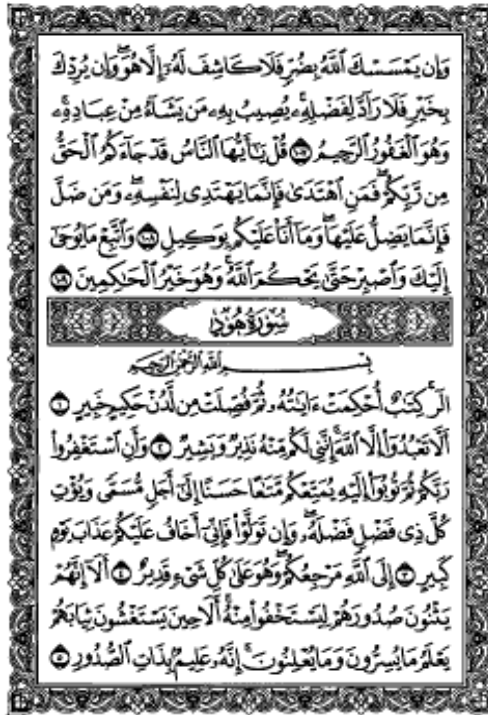 وَإِن يَمْسَسْكَ ٱللَّهُ بِضُرٍّ فَلَا كَاشِفَ لَهُۥٓ إِلَّا هُوَ ۖ وَإِن يُرِدْكَ
بِخَيْرٍ فَلَا رَآدَّ لِفَضْلِهِۦ ۚ يُصِيبُ بِهِۦ مَن يَشَآءُ مِنْ عِبَادِهِۦ ۚ
وَهُوَ ٱلْغَفُورُ ٱلرَّحِيمُ ۝١٠٧ قُلْ يَٰٓأَيُّهَا ٱلنَّاسُ قَدْ جَآءَكُمُ ٱلْحَقُّ
مِن رَّبِّكُمْ ۖ فَمَنِ ٱهْتَدَىٰ فَإِنَّمَا يَهْتَدِى لِنَفْسِهِۦ ۖ وَمَن ضَلَّ
فَإِنَّمَا يَضِلُّ عَلَيْهَا ۖ وَمَآ أَنَا۠ عَلَيْكُم بِوَكِيلٍ ۝١٠٨ وَٱتَّبِعْ مَا يُوحَىٰٓ
إِلَيْكَ وَٱصْبِرْ حَتَّىٰ يَحْكُمَ ٱللَّهُ ۚ وَهُوَ خَيْرُ ٱلْحَٰكِمِينَ ۝١٠٩
سُورَةُ هُودٍ
بِسْمِ ٱللَّهِ ٱلرَّحْمَٰنِ ٱلرَّحِيمِ
الٓر ۚ كِتَٰبٌ أُحْكِمَتْ ءَايَٰتُهُۥ ثُمَّ فُصِّلَتْ مِن لَّدُنْ حَكِيمٍ خَبِيرٍ ۝١
أَلَّا تَعْبُدُوٓا۟ إِلَّا ٱللَّهَ ۚ إِنَّنِى لَكُم مِّنْهُ نَذِيرٌ وَبَشِيرٌ ۝٢ وَأَنِ ٱسْتَغْفِرُوا۟
رَبَّكُمْ ثُمَّ تُوبُوٓا۟ إِلَيْهِ يُمَتِّعْكُم مَّتَٰعًا حَسَنًا إِلَىٰٓ أَجَلٍ مُّسَمًّى وَيُؤْتِ
كُلَّ ذِى فَضْلٍ فَضْلَهُۥ ۖ وَإِن تَوَلَّوْا۟ فَإِنِّىٓ أَخَافُ عَلَيْكُمْ عَذَابَ يَوْمٍ
كَبِيرٍ ۝٣ إِلَى ٱللَّهِ مَرْجِعُكُمْ ۖ وَهُوَ عَلَىٰ كُلِّ شَىْءٍ قَدِيرٌ ۝٤ أَلَآ إِنَّهُمْ
يَثْنُونَ صُدُورَهُمْ لِيَسْتَخْفُوا۟ مِنْهُ ۚ أَلَا حِينَ يَسْتَغْشُونَ ثِيَابَهُمْ
يَعْلَمُ مَا يُسِرُّونَ وَمَا يُعْلِنُونَ ۚ إِنَّهُۥ عَلِيمٌۢ بِذَاتِ ٱلصُّدُورِ ۝٥